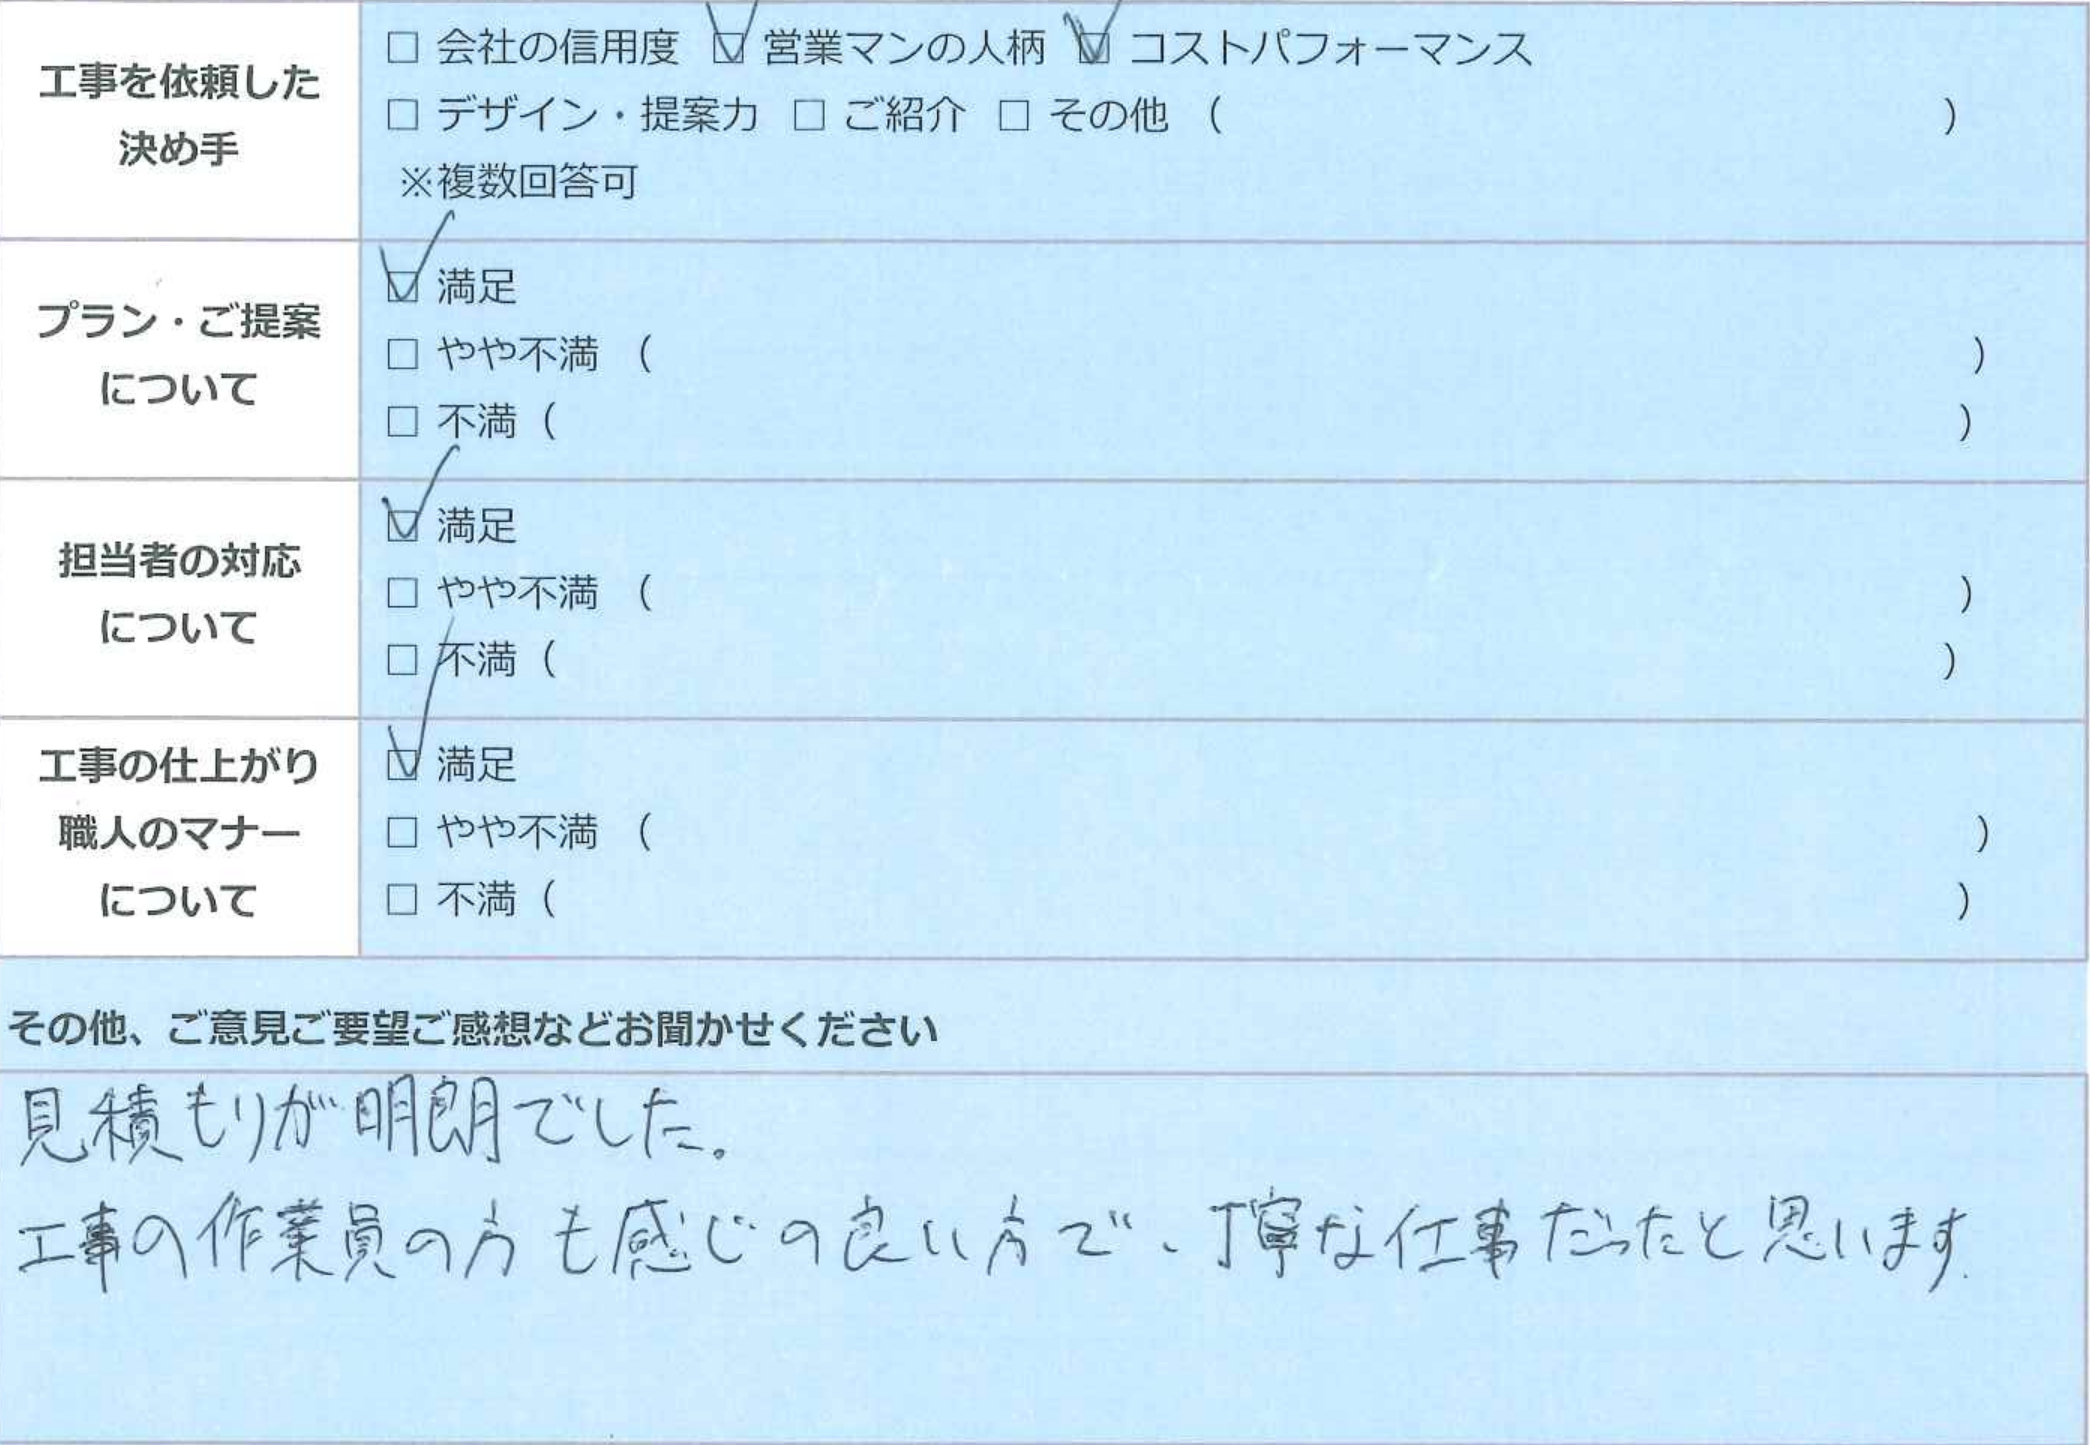 工事を依頼した
決め手
□ 会社の信用度 ☑ 営業マンの人柄 ☑ コストパフォーマンス
□ デザイン・提案力 □ ご紹介 □ その他 ( )
※複数回答可
プラン・ご提案
について
☑ 満足
□ やや不満 ( )
□ 不満 ( )
担当者の対応
について
☑ 満足
□ やや不満 ( )
□ 不満 ( )
工事の仕上がり
職人のマナー
について
☑ 満足
□ やや不満 ( )
□ 不満 ( )
その他、ご意見ご要望ご感想などお聞かせください
見積もりが明朗でした。
工事の作業員の方も感じの良い方で、丁寧な仕事だったと思います.